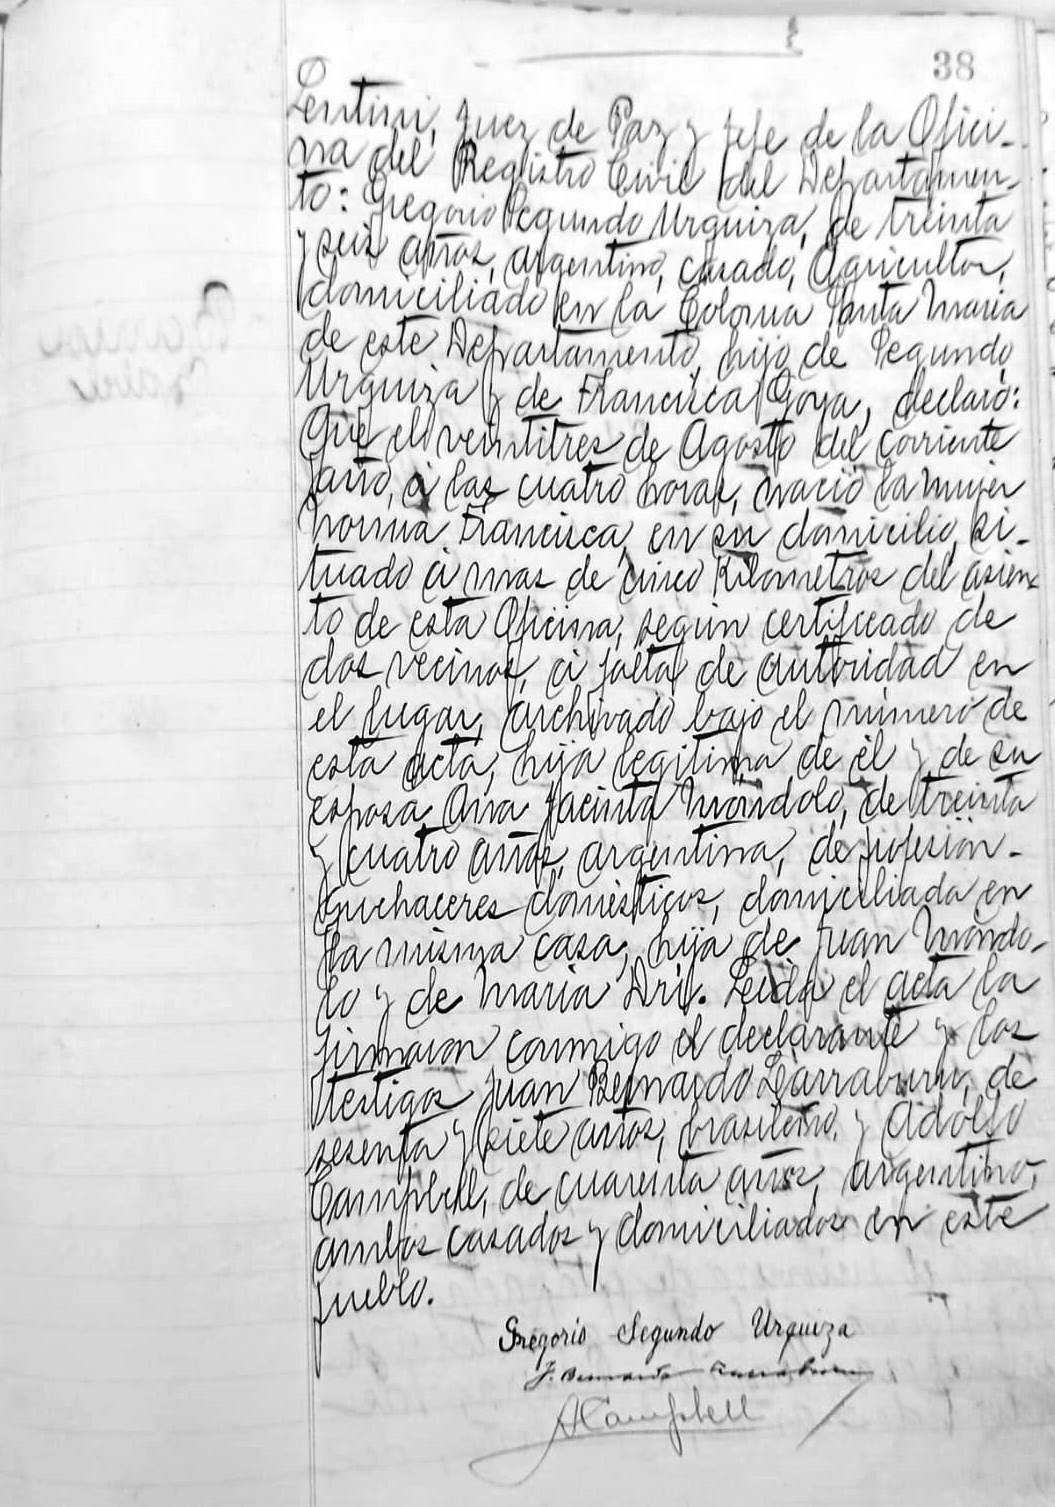 38
Lentini, Juez de Paz y Jefe de la Ofici-
na del Registro Civil del Departamen-
to: Gregorio Segundo Urquiza, de treinta
y seis años, argentino, casado, Agricultor,
domiciliado en la Colonia Santa Maria
de este Departamento, hijo de Segundo
Urquiza y de Francisca Goya, declaró:
Que el veintitres de Agosto del corriente
año, á las cuatro horas, nació la mujer
Norma Francisca, en su domicilio, si-
tuado á mas de cinco Kilometros del asien-
to de esta Oficina, según certificado de
dos vecinos, á falta de autoridad en
el lugar, archivado bajo el número de
esta acta, hija legitima de él y de su
esposa Ana Jacinta Móndolo, de treinta
y cuatro años, argentina, de profesión-
quehaceres domésticos, domiciliada en
la misma casa, hija de Juan Móndo-
lo y de Maria Dri. Leida el acta la
firmaron conmigo el declarante y los
testigos Juan Bernardo Larraburu, de
sesenta y siete años, brasileño, y Adolfo
Campbell, de cuarenta años, argentino,
ambos casados y domiciliados en este
pueblo.
Gregorio Segundo Urquiza
J. Bernardo Larraburu
ACampbell